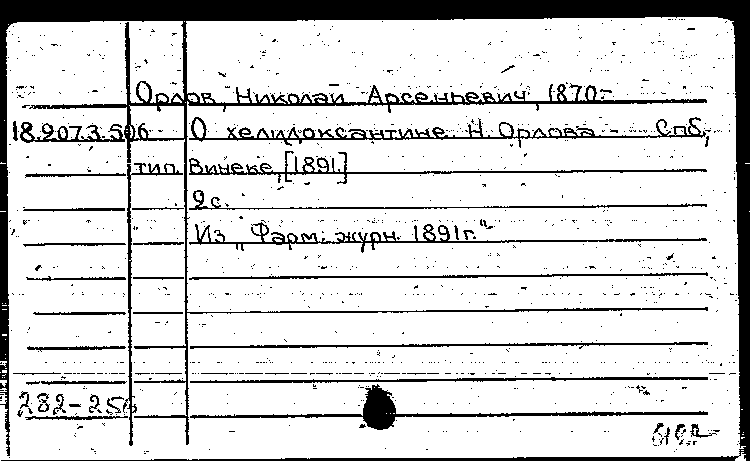 Орлов, Николай Арсеньевич, 1870-
18.907.3.506 О хелидоксантине. Н. Орлова - Спб,
тип. Винеке, [1891.]
2 с.
Из „Фарм. журн. 1891 г."
282-256